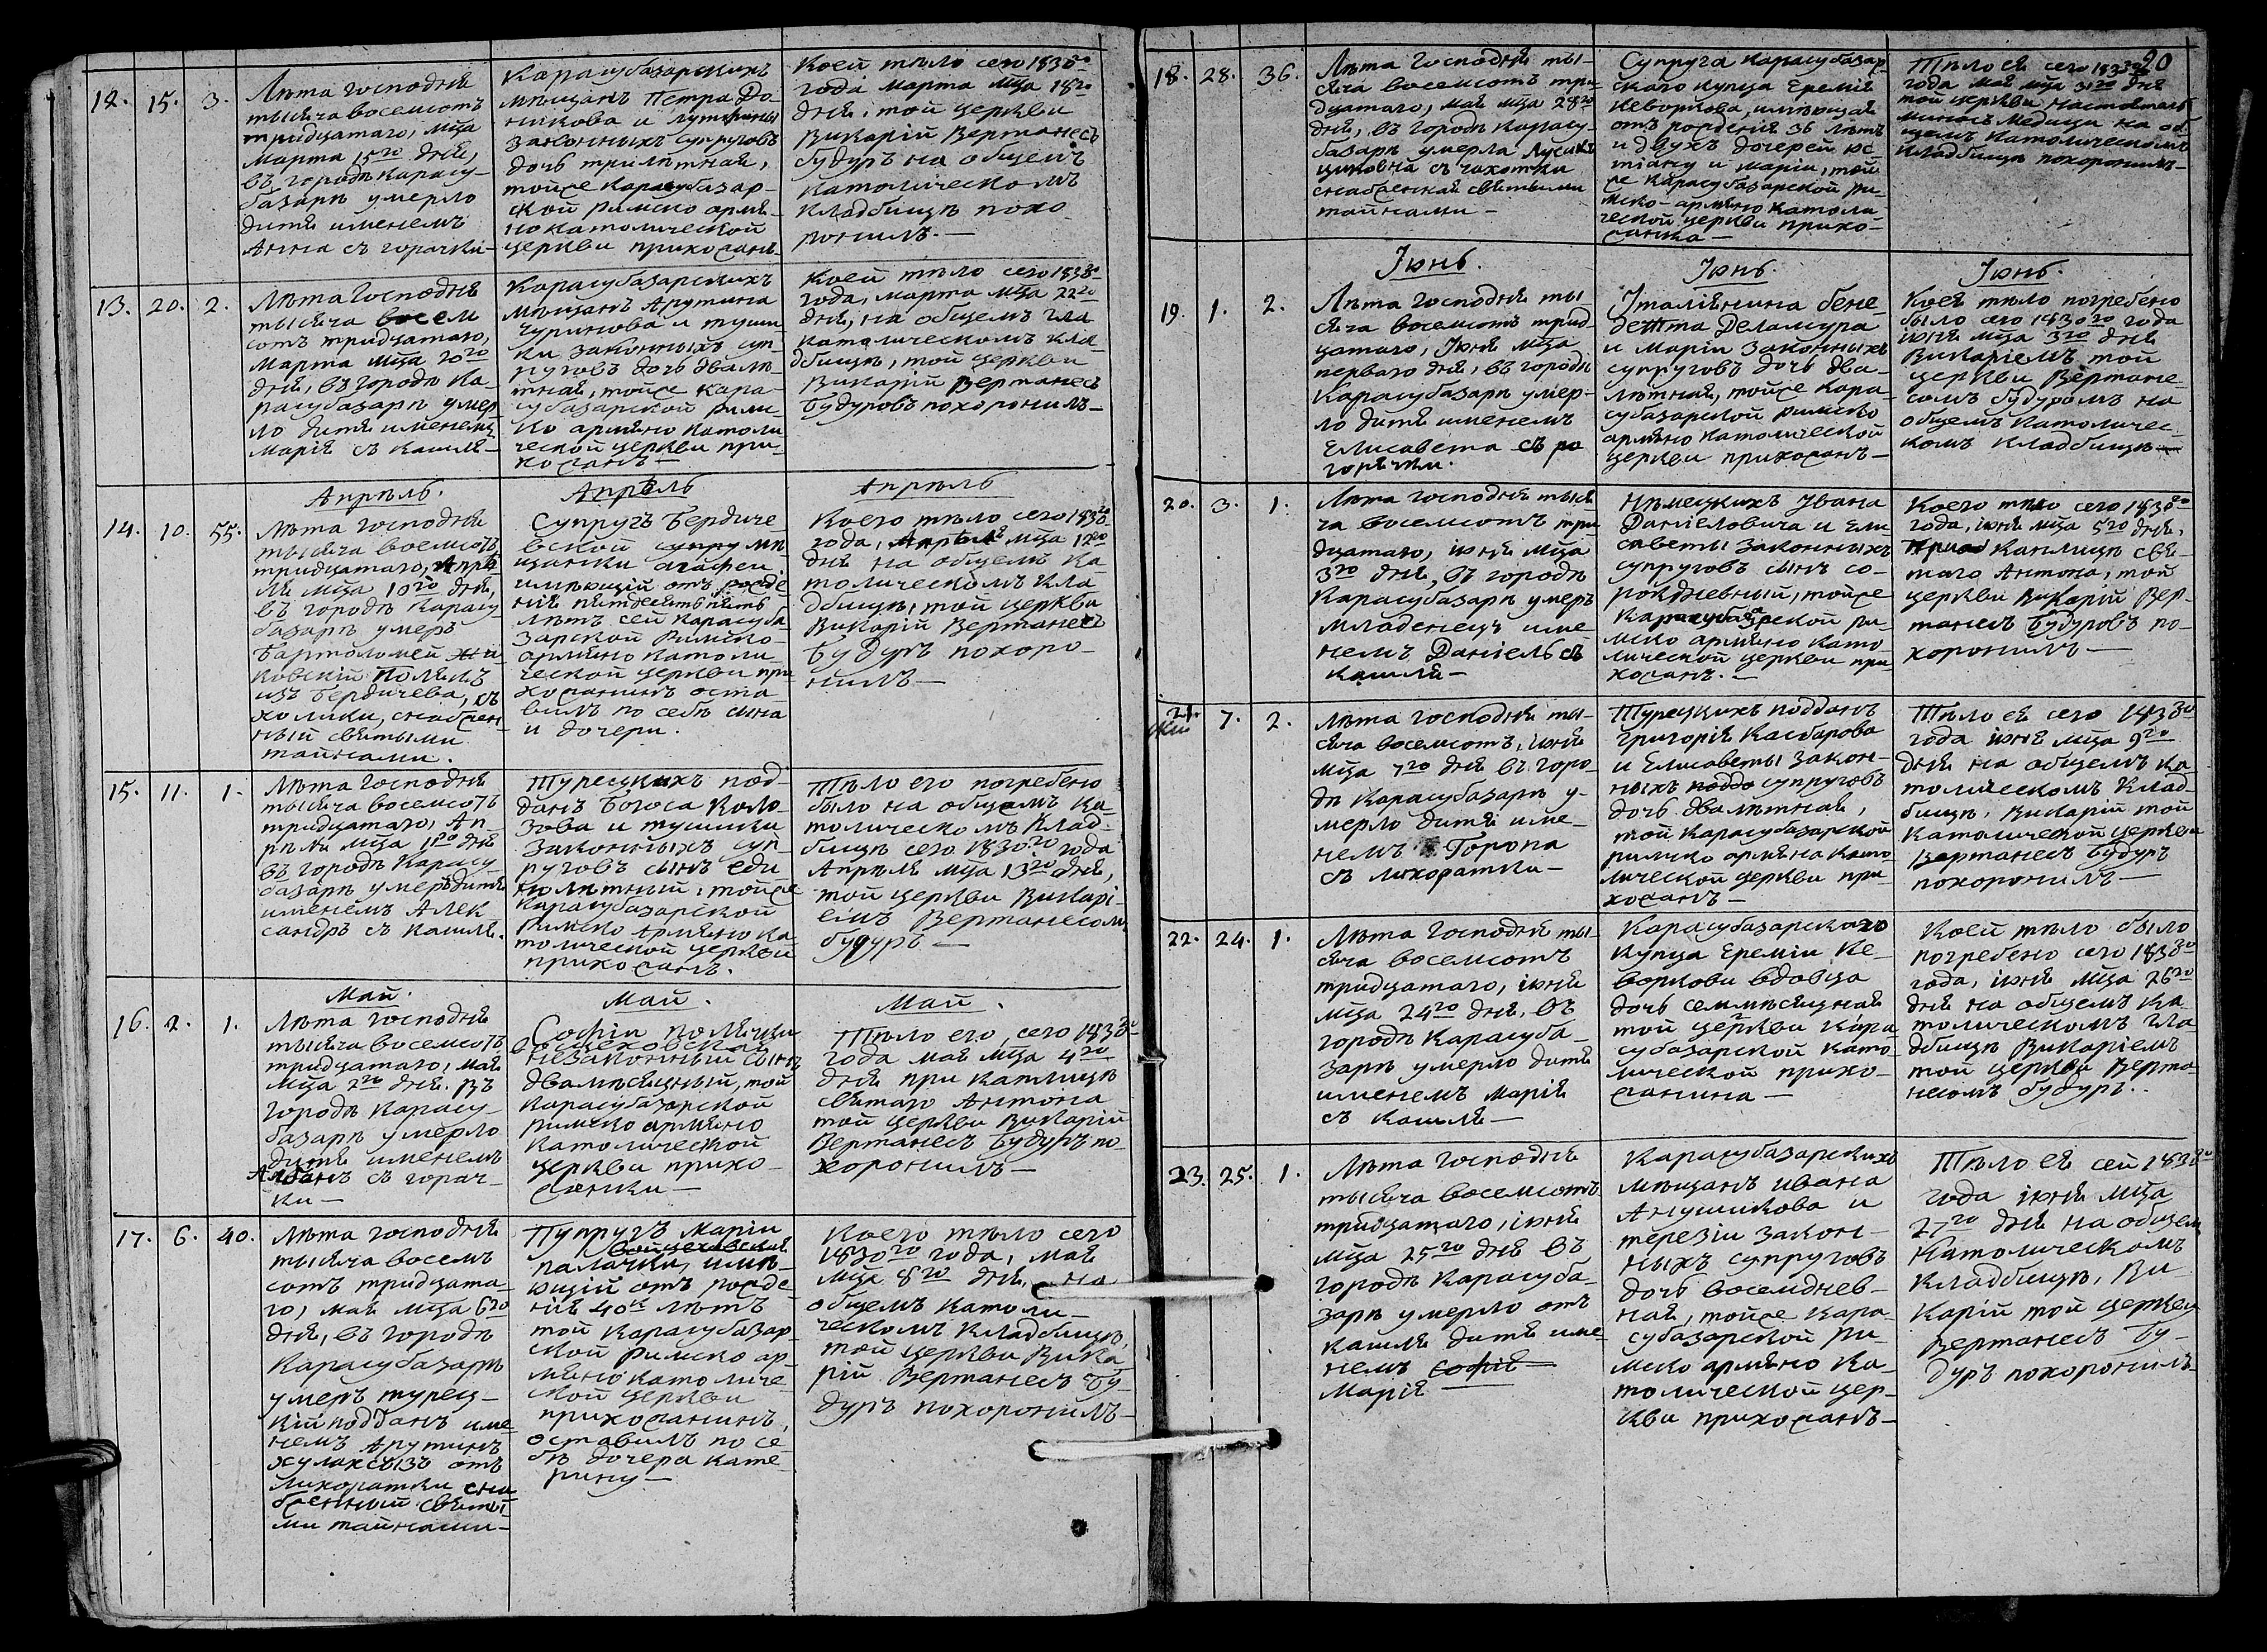 12. 15. 3.
Лѣта господня
тысяча восемсотъ
тридцатаго, мца
Марта 15го дня,
въ городѣ Карасу-
базарѣ умерло
дитя именемъ
Анна съ горачки-
Карасубазарскихъ
мѣщанъ Петра До-
никова и
законныхъ супруговъ
дочь трилѣтная,
тойже Карасубазар-
ской римско армя-
нокатолической
церкви прихожанъ-
Коей тѣло сего 1830го
года марта мца 18го
дня, той церкви
Викарій Вертанесъ
будуръ на общемъ
католическомъ
кладбищѣ похо-
ронилъ.-
13. 20. 2.
Лѣта Господня
тысяча восем
сотъ тридцатаго,
марта мца 20го
дня, въ городѣ Ка-
расубазарѣ умер
ло дитя именемъ
Марія съ кашля-
Карасубазарскихъ
мѣщанъ Арутина
Чуринова и туши
ки законныхъ суп-
руговъ дочь двалѣ-
тная, тойже Кара-
субазарской римс-
ко армяно католи
ческой церкви при-
хожанъ-
Коей тѣло сего 1830го
года, марта мца 22го
дня, на общемъ гла
католическомъ кла-
дбищѣ, той церкви
Викарій Вертанесъ
Будуровъ похоронилъ-
Апрѣль.
Апрѣль
Апрѣль
14. 10. 55.
Лѣта господня
тысяча восемсотъ
тридцатаго, Апрѣ
ля мца 10го дня,
въ городѣ Карасу-
базарѣ умеръ
Бартоломей
ковскій Полякъ
изъ Бердичева, съ
холики, снабжен
ный святыми
тайнами.
Супругъ Бердиче
вской супру мѣ
щанки агафеи
имѣющій отъ рожде
нія пятдесятъ пять
лѣтъ сей Карасуба
зарской Римско-
армяно католи-
ческой церкви при
хожанинъ оста
вилъ по себѣ сына
и дочери.
Коего тѣло сего 1830го
года, Апрѣля мца 12го
дня на общемъ ка
толическомъ кла
дбищѣ, той церкви
Викарій Вертанесъ
Будуръ похоро-
нилъ-
15. 11. 1.
Лѣта господня
тысяча восемсотъ
тридцатаго, Ап-
рѣля мца 11го дня
въ городѣ Карасу
базарѣ умеръ дитя
именемъ Алек
сандръ съ кашля.
Турецкихъ под-
данъ Богоса Коло-
зова и тушики
законныхъ суп-
руговъ сынъ еди-
нолѣтный, тойже
Карасубазарской
римско Армяно ка-
толической церкви
прихожанъ.
Тѣло его погребено
было на общемъ ка
толическомъ клад-
бищѣ сего 1830го года
Апрѣля мца 13го дня,
той церкви Викарі-
емъ Вертанесомъ
будуръ-
Май.
Май.
Май.
16. 2. 1.
Лѣта господня
тысяча восемсотъ
тридцатаго, мая
мца 2го дня. въ
городѣ Карасу-
базарѣ умерло
дитя именемъ
съ горач-
ки-
Софіи полячки
незаконный сынъ
двамѣсячный, той
Карасубазарской
римско армяно
католической
церкви прихо-
жанки-
Тѣло его, сего 1830го
года мая мца 4го
дня при каплицѣ
святаго Антона
той церкви Викарій
Вертанесъ Будуръ по
хоронилъ-
17. 6. 40.
Лѣта господня
тысяча восемъ
сотъ тридцата-
го, мая мца 6го
дня, въ городѣ
Карасубазарѣ
умеръ турец-
кій подданъ име
немъ Арутинъ
отъ
лихоратки сна
бженный святы
ми тайнами-
Пупругъ Маріи
войцеховская
палячки, имѣ-
ющій отъ рожде
нія 40къ лѣтъ
той Карасубазар
ской римско ар-
мяно католиче-
ской церкви
прихожанинъ,
оставилъ по се-
бѣ дочера Кате-
рину-
Коего тѣло сего
1830го года, мая
мца 8го дня, на
общемъ католи-
ческомъ кладбищѣ,
той церкви Вика-
рій Вертанесъ Бу-
дуръ похоронилъ-
20
18. 28. 36.
Лѣта господня ты-
сяча восемсотъ три-
дцатаго, мая мца 28го
дня, въ городѣ Карасу-
базарѣ умерла Лусика
съ чахотки
снабженная святыми
тайнами-
Супруга Карасубазар-
скаго купца Еремія
Кеворкова, имѣющая
отъ рожденія 36 лѣтъ
и двухъ дочерей юс
тіану и марію, той
же Карасубазарской ри-
мско-армяно католи
ческой церкви прихо-
жанка-
Тѣло ея сего 1830го
года мая мца 31го дня
той церкви настоятель
на об-
щемъ католическомъ
кладбищѣ похоронилъ-
Іюнь.
Іюнь.
Іюнь.
19. 1. 2.
Лѣта господня ты-
сяча восемсотъ трид
цатаго, Іюня мца
перваго дня, въ городѣ
Карасубазарѣ умер-
ло дитя именемъ
Елисавета съ го
горячки.
Італіянина бене-
детта Деламура
и Маріи законныхъ
супруговъ дочь два-
лѣтная, тойже Кара-
субазарской римско
армяно католической
церкви прихожанъ-
Коея тѣло погребено
было сего 1830го года
іюня мца 3го дня
Викаріемъ той
церкви Вертане-
сомъ будуромъ на
общемъ католичес-
комъ кладбищѣ-
20. 3. 1.
Лѣта господня тыся
ча восемсотъ три
дцатаго, іюня мца
3го дня, въ городѣ
Карасубазарѣ умеръ
младенецъ име
немъ Даніель съ
кашля-
Нѣмецкихъ Ивана
Даніеловича и Ели
саветы законныхъ
супруговъ сынъ со-
рокдневный, тойже
Карасубазарской ри-
мско армяно като-
лической церкви при
хожанъ.-
Коего тѣло сего 1830го
года, іюня мца 5го дня,
при каплицѣ свя-
таго Антона, той
церкви Викарій Вер-
танесъ Будуровъ по-
хоронилъ-
21. 7. 2.
Лѣта господня ты-
сяча восемсотъ, іюня
мца 7го дня въ горо-
дѣ Карасубазарѣ у-
мерло дитя име-
немъ Горопа
съ лихоратки-
Турецкихъ подданъ
Григорія Касбарова
и Елисаветы закон-
ныхъ поддо супруговъ
дочь двалѣтная,
той Карасубазарской
римско армяна като
лической церкви при
хожанъ-
Тѣло ея сего 1830го
года іюня мца 9го
дня на общемъ ка-
толическомъ клад-
бищѣ, Викарій той
католической церкви
Вертанесъ Будуръ
похоронилъ-
22. 24. 1.
Лѣта Господня ты-
сяча восемсотъ
тридцатаго, іюня
мца 24го дня, въ
городѣ Карасуба-
зарѣ умерло дитя
именемъ Марія
съ кашля-
Карасубазарскаго
купца Ереміи Ке-
воркови вдовца
дочь семимѣсяцная
той церкви Кара
субазарской като-
лической прихо-
жанина-
Коей тѣло было
погребено сего 1830го
года, іюня мца 26го
дня на общемъ ка
толическомъ гла
дбищѣ Викаріемъ
той церкви Верта-
несомъ будуръ.
23. 25. 1.
Лѣта господня
тысяча восемсотъ
тридцатаго, іюня
мца 25го дня въ
городѣ Карасуба-
зарѣ умерло отъ
кашля дитя име-
немъ софія
Марія
Карасубазарскихъ
мѣщанъ ивана
Анушикова и
терезіи закон-
ныхъ супруговъ
дочь восемднев-
ная, тойже Кара-
субазарской ри-
мско армяно ка-
толической цер-
кви прихожанъ-
Тѣло ея сей 1830го
года іюня мца
27го дня на общем
католическомъ
кладбищѣ, Ви-
карій той церкви
Вертанесъ Бу-
дуръ похоронилъ